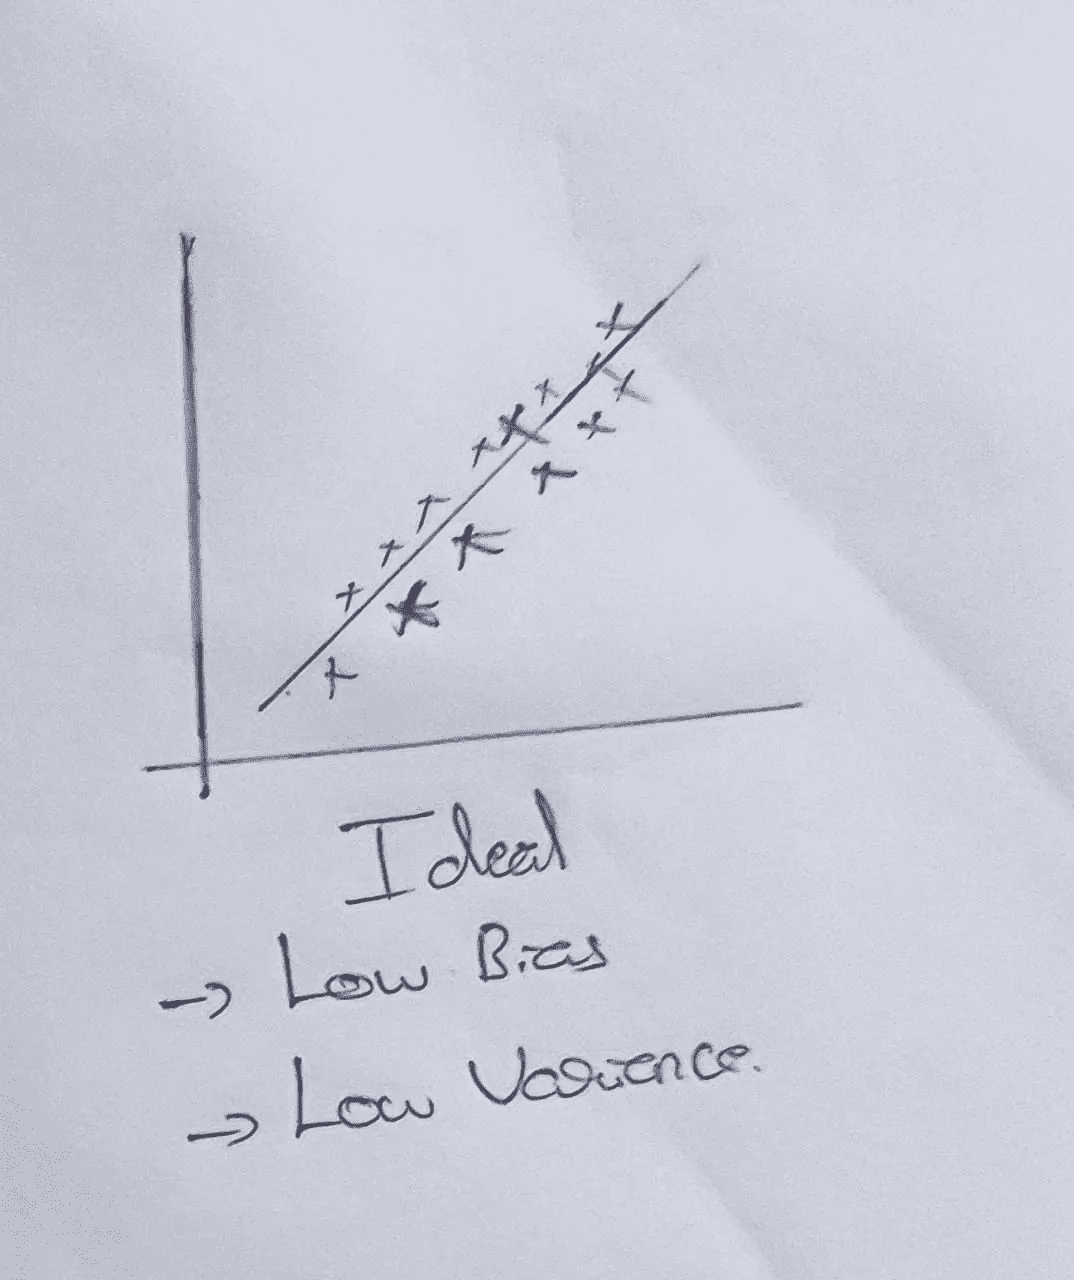 Ideal
→ Low Bias
→ Low Varience.